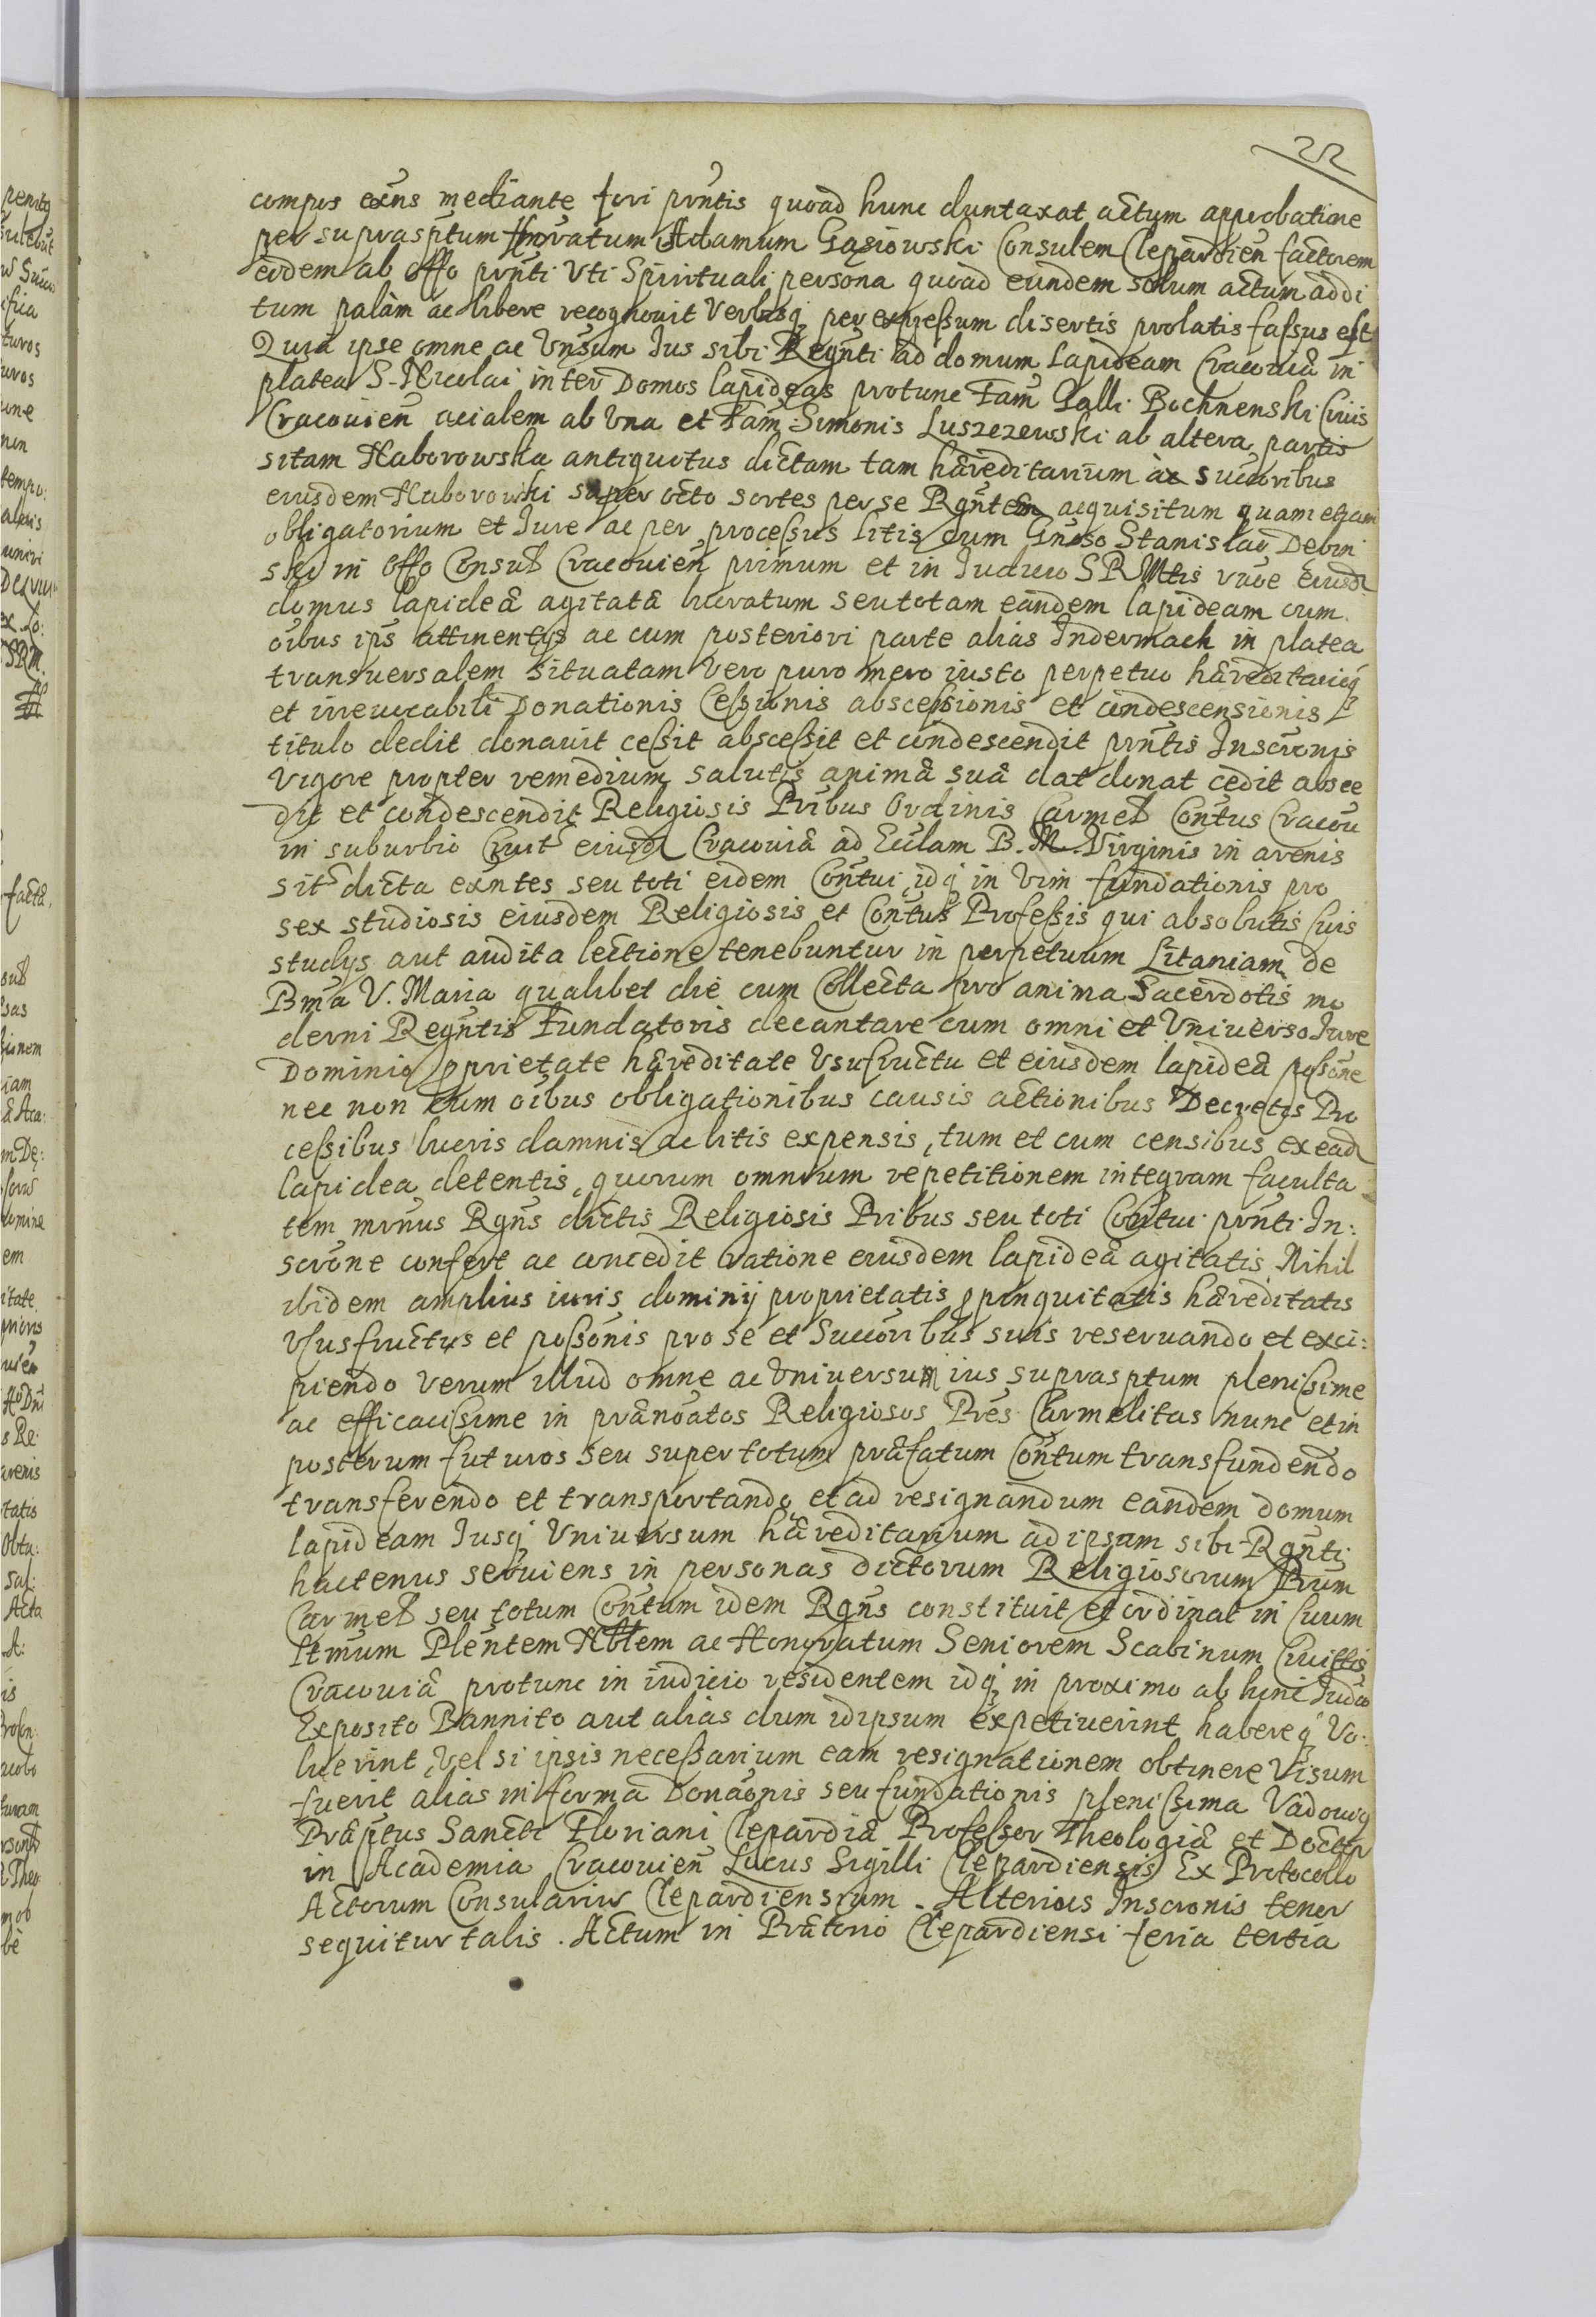 22
compos exñs mediante fori pr̃ntis quoad hunc duntaxat actum approbatione
per suprasptum Honoratum Adamum Gąsiowski Consulem Clepardien̄ factorem
eidem ab offo prñti Vti Spirituali persona quoad eundem solum actum addi
tum palàm ac libere recognouit Verbisq̨ per expressum disertis prolatis fassus est
Quia ipse omne ac Vnsum Ius sibi Regñti ad domum Lapideam Cracouiæ in
platea S. Nicolai inter Domos lapideas protunc Fam̃ Galli Bochnenski Ciuis
Cracouien̄ acialem ab Vna et Fam̃ Simonis Luszczewski ab altera partis
sitam Naborowska antiquitus dictam tam hæreditarium à successoribus
eiusdem Naborowski super octo sortes per se Rgñtem acquisitum quam etiam
obligatorium et Iure ac per processus litis cum Gnoso Stanislao Debin
ski in Offo Consul Cracouien̄ primum et in Iudicio S R Mtis rãoe eiusd
domus lapideæ agitatæ lucratum seu totam eandem lapideam cum
oibus ips attinentijs ac cum posteriori parte alias Indermach in platea
transuersalem situatam Vero puro mero iusto perpetuo hæreditarioq̨
et irreuocabili Donationis Cessionis abscessionis et condescensionis
titulo dedit donauit cessit abscessit et condescendit prñtis Inscronis
Vigore propter remedium salutis animæ suæ dat donat cedit absce
dit et condescendit Religiosis Pribus Ordinis Carmel Contus Cracou
in suburbio Ciuit eiusd Cracouiæ ad Ecclam B. M. Virginis in arenis
sit dicta exntes seu toti eidem Contui, idq̨ in Vim fundationis pro
sex studiosis eiusdem Religiosis et Contus Professis qui absolutis suis
studys aut audita lectione tenebuntur in perpetuum Litaniam de
Bm̃a V. Maria qualibet die cum Collecta pro anima Sacerdotis mo
derni Regñtis Fundatoris decantare cum omni et Vniuerso Iure
Dominio proprietate hæreditate Vsufructu et eiusdem lapideæ possone
nec non cum oibus obligationibus causis actionibus Decretis Pro
cessibus lucris damnis ac litis expensis, tum et cum censibus ex ead
lapidea detentis, quorum omnium repetitionem integram faculta
tem Rgñs dictis Religiosis Pribus seu toti Contui prñti In:
scrone confert ac concedit ratione eiusdem lapideæ agitatis. Nihil
ibidem amplius iuris dominij proprietatis propinquitatis hæreditatis
Vsusfructus et possonis pro se et Succoribus suis reseruando et exci:
piendo Verum illud omne ac Vniuersum ius suprasptum plenissime
ac efficacissime in prænoatos Religiosos Pres Carmelitas nunc et in
posterum futuros seu super totum præfatum Contum transfundendo
transferendo et transportando et ad resignandum eandem domum
lapideam Iusq̨ Vniuersum hæreditarium ad ipsam sibi Rgñti
hactenus seruiens in personas dictorum Religiosorum Prum
Carmel seu totum Contum idem Rgñs constituit et ordinat in suum
ltmum Plentem Nblem ac Honoratum Seniorem Scabinum Ciuittis
Cracouiæ protunc in iudicio residentem idq̨ in proximo ab hinc Iudco
Exposito Bannito aut alias dum idipsum expetiuerint habereq̨ Vo:
luerint, Vel si ipsis necessarium eam resignationem obtinere Visum
fuerit alias in forma Donaonis seu fundationis plenissima Vadouiq̨
Præptus Sancti Floriani Clepardiæ Professor Theologiæ et Doctor
in Academia Cracouien̄ Locus Sigilli Clepardiensis Ex Protocollo
Actorum Consulariu Clepardiensium. Alterius Inscronis tenor
sequitur talis. Actum in Prætorio Clepardiensi feria tertia